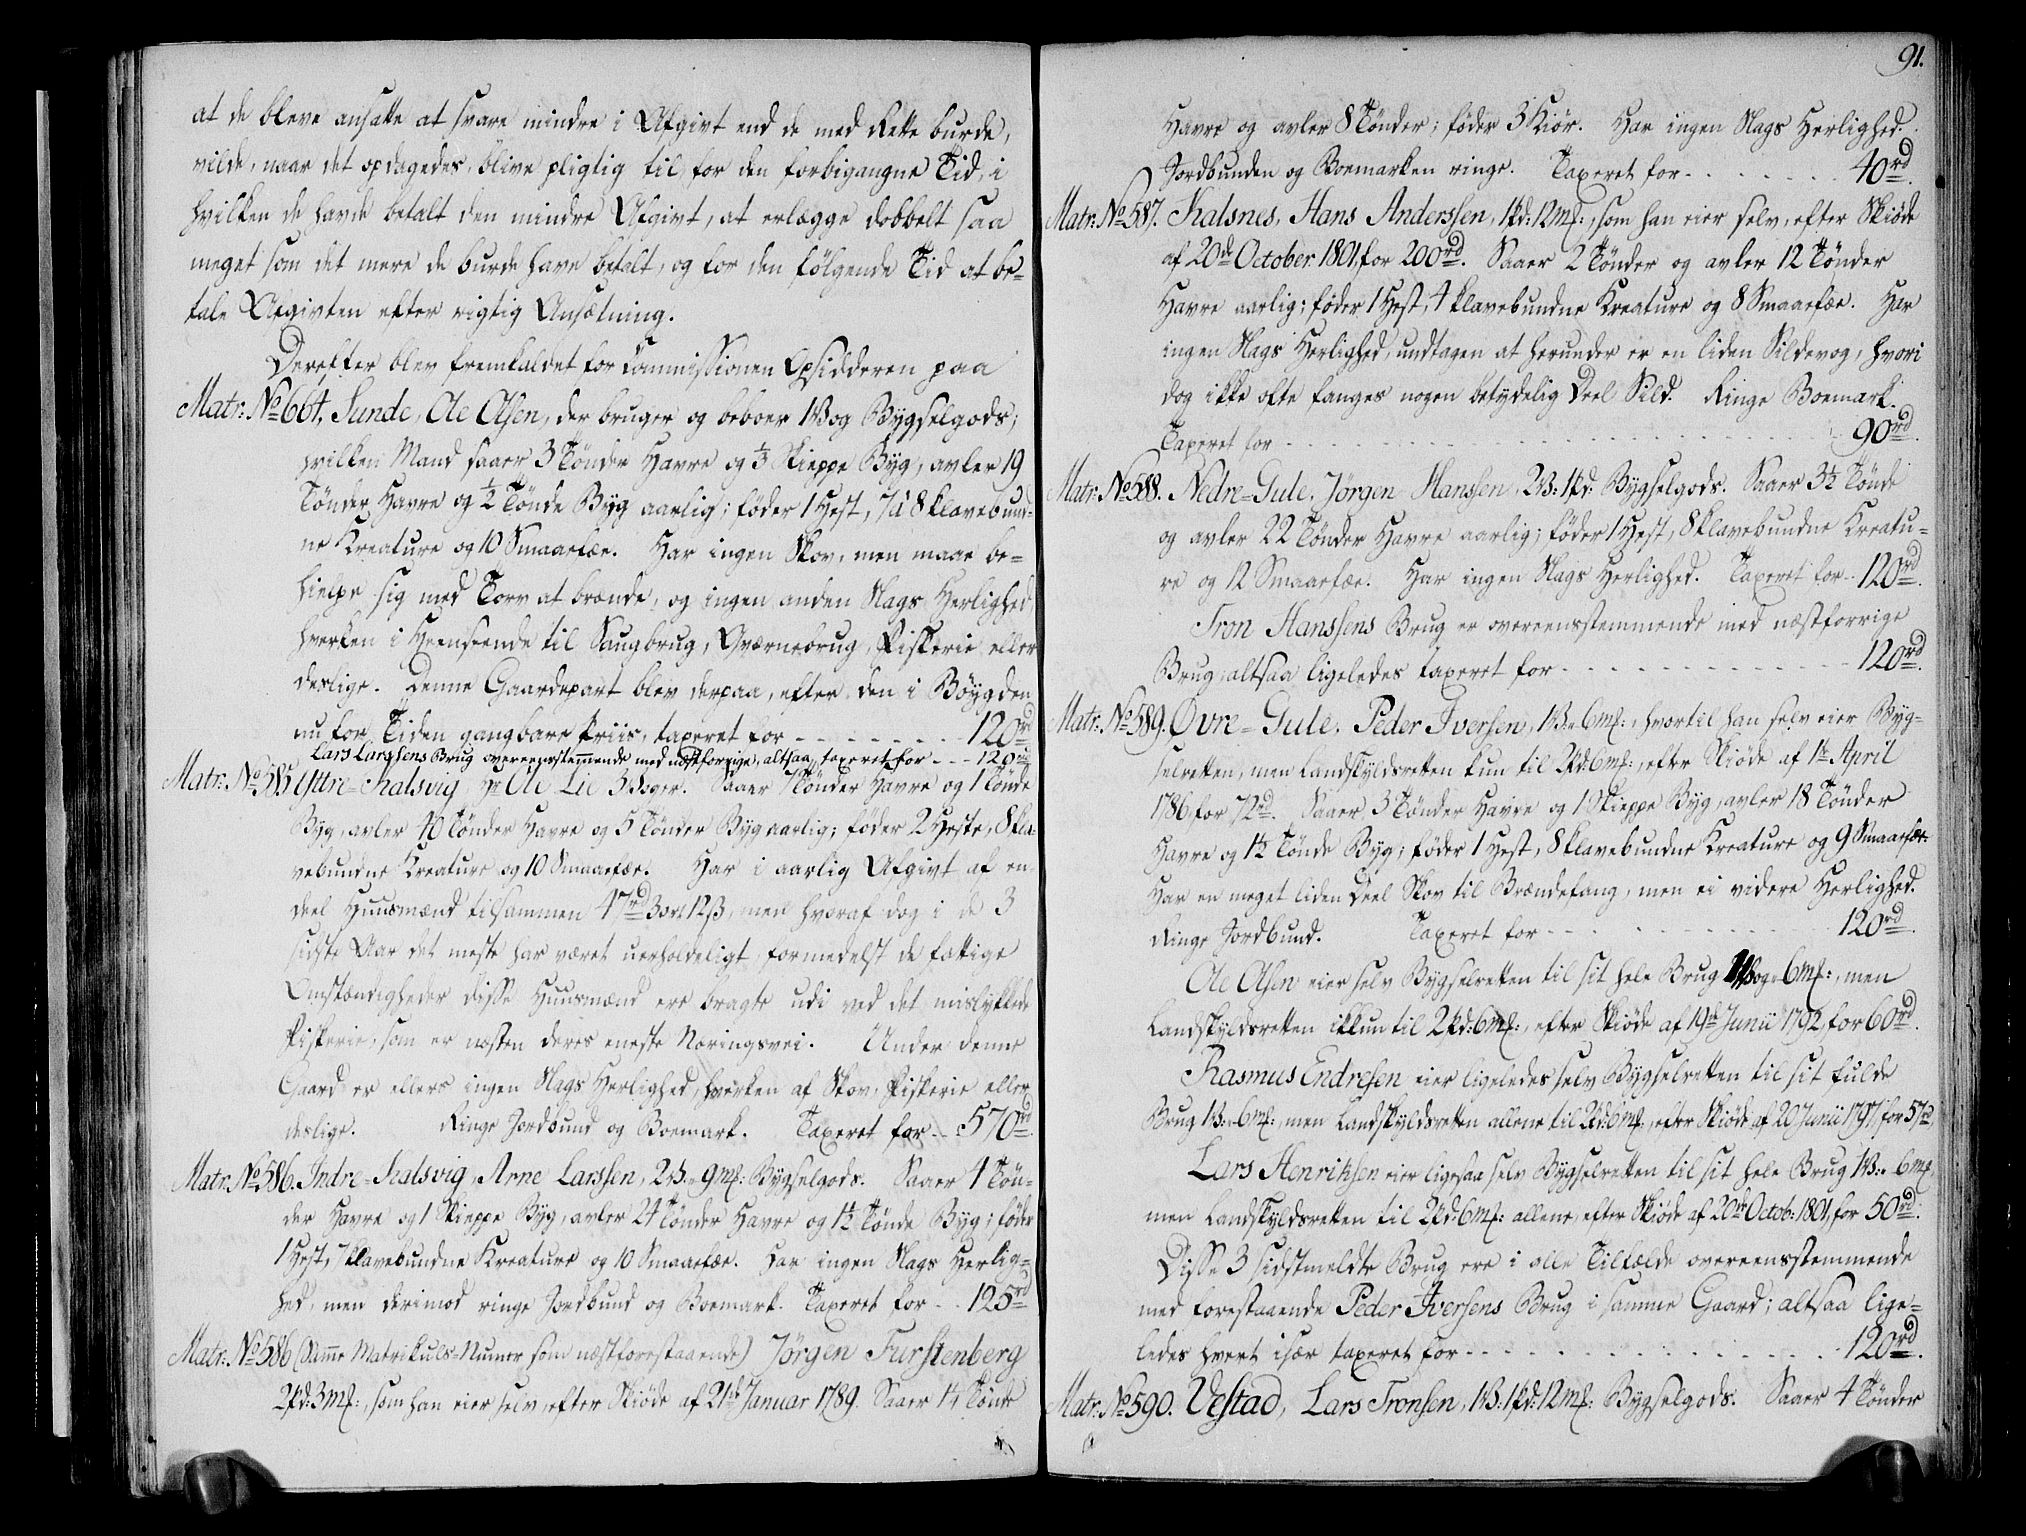 at de bleve ansatte at svare mindre i Afgivt end de med Rette burde,
vilde, naar det opdagedes, blive pligtig til, for den forbigangne Tid, i
hvilken de havde betalt den mindre Afgivt, at erlægge dobbelt saa
meget som det mere de burde have betalt, og for den følgende Tid at be-
tale Afgivten efter rigtig Ansætning.
Derefter blev fremkaldet for Commissionen Opsidderen paa
Matr: No 664, Sunde, Ole Olsen, der bruger og beboer 1 Vog Bygselgods;
hvilken Mand saaer 3 Tønder Havre og 1/3 Skieppe Byg, avler 19
Tønder Havre og 1/2 Tønde Byg aarlig; føder 1 Hest, 7 à 8 klavebund-
ne Kreature og 10 Smaafæe. Har ingen Skov, men maae be-
hielpe sig med Torv at brænde, og ingen anden Slags Herlighed
hverken i Henseende til Saugbrug, Qværnebrug, Fiskerie eller
deslige. Denne Gaardepart blev derpaa, efter den i Böygden
nu for Tiden gangbare Priis, taxeret for - - - - - - - 120rd
Lars Larssens Brug overeensstemmende med næstforrige, altsaa taxeret for - - - 120rd
Matr: No 585 Yttre-Skalsvig, Hr Ole Lie 3 Voger. Saaer 7 Tønder Havre og 1 Tønde
Byg, avler 40 Tønder Havre og 5 Tønder Byg aarlig; føder 2 Heste, 8 kla-
vebundne Kreature og 10 Smaafæe. Har i aarlig Afgivt af en
deel Huusmænd tilsammen 47rd 3ort 12ß, men hvoraf dog i de 3
sidste Aar det meste har været uerholdeligt formedelst de fattige
Omstændigheder disse Huusmænd ere bragte udi ved det mislykkede
Fiskerie, som er næsten deres eneste Næringsvei. Under denne
Gaard er ellers ingen Slags Herlighed, hverken af Skov, Fiskerie eller
deslige. Ringe Jordbund og Boemark. Taxeret for - - 570rd
Matr: No 586. Indre-Skalsvig, Arne Larssen, 2 V: 9 mk: Bygselgods. Saaer 4 Tøn-
der Havre og 1 Skieppe Byg, avler 24 Tønder Havre og 1 1/2 Tønde Byg; føder
1 Hest, 7 klavebundne Kreature og 10 Smaafæe. Har ingen Slags Herlig-
hed, men derimod ringe Jordbund og Boemark. Taxeret for - - 125rd
Matr: No 586 (Samme Matrikuls-Numer som næstforestaaende) Jörgen Furstenberg
2 Pd: 3 mk:, som han eier selv, efter Skiöde af 21de Januar 1789. Saaer Tønde
91.
Havre og avler 8 Tønder; føder 3 Kiör. Har ingen Slags Herlighed.
Jordbunden og Boemarken ringe. Taxeret for - - - - - - - 40rd.
Matr: No 587. Skalsnes, Hans Anderssen, 1 Pd: 12 mk:, som han eier selv, efter Skiöde
af 20de October 1801, for 200rd. Saaer 2 Tønder og avler 12 Tønder
Havre aarlig; føder 1 Hest, 4 klavebundne Kreature og 8 Smaafæe. Har
ingen Slags Herlighed, undtagen at herunder er en liden Sildevog, hvori
dog ikke ofte fanges nogen betydelig Deel Sild. Ringe Boemark.
Taxeret for - - - - - - - - - - - - - - - - - 90rd.
Matr: No 588. Nedre-Gule. Jörgen Hanssen, 2 V: 1 Pd: Bygselgods. Saaer 3 1/2 Tønde
og avler 22 Tønder Havre aarlig; føder 1 Hest, 8 klavebundne Kreatu-
re og 12 Smaafæe. Har ingen Slags Herlighed. Taxeret for - 120rd.
Tron Hanssens Brug er overeensstemmende med næstforrige
Brug, altsaa ligeledes taxeret for - - - - - - - - - - - - 120rd.
Matr: No 589. Övre-Gule. Peder Iversen, 1 V: 6 mk:, hvortil han selv eier Byg-
selretten, men Landskyldsretten kun til 2 Pd: 6 mk:, efter Skiöde af 1te April
1786, for 72rd. Saaer 3 Tønder Havre og 1 Skieppe Byg, avler 18 Tønder
Havre og 1 1/2 Tønde Byg; føder 1 Hest, 8 klavebundne Kreature og 9 Smaafæe.
Har en meget liden Deel Skov til Brændefang, men ei videre Herlighed.
Ringe Jordbund. Taxeret for - - - - - - - - - - 120rd.
Ole Olsen eier selv Bygselretten til sit hele Brug 1 Vog 6 mk:, men
Landskyldsretten ikkun til 2 Pd: 6 mk:, efter Skiöde af 19de Junii 1792, for 60rd.
Rasmus Endresen eier ligeledes selv Bygselretten til sit fulde
Brug 1 V: 6 mk:, men Landskyldsretten allene til 2 Pd: 6 mk:, efter Skiöde af 20 Junii 1797, for 57rd,
Lars Henriksen eier ligesaa selv Bygselretten til sit hele Brug 1 V: 6 mk,
men Landskyldsretten til 2 Pd: 6 mk: allene, efter Skiöde af 20de Octob: 1801, for 50rd.
Disse 3 sidstmeldte Brug ere i alle Tilfælde overeensstemmende
med forestaaende Peder Iversens Brug i samme Gaard; altsaa lige-
ledes hvert især taxeret for - - - - - - - - - - - - - - 120rd.
Matr: No 590. Vestad, Lars Tronsen, 1 V: 1 Pd: 12 mk: Bygselgods. Saaer 4 Tønder